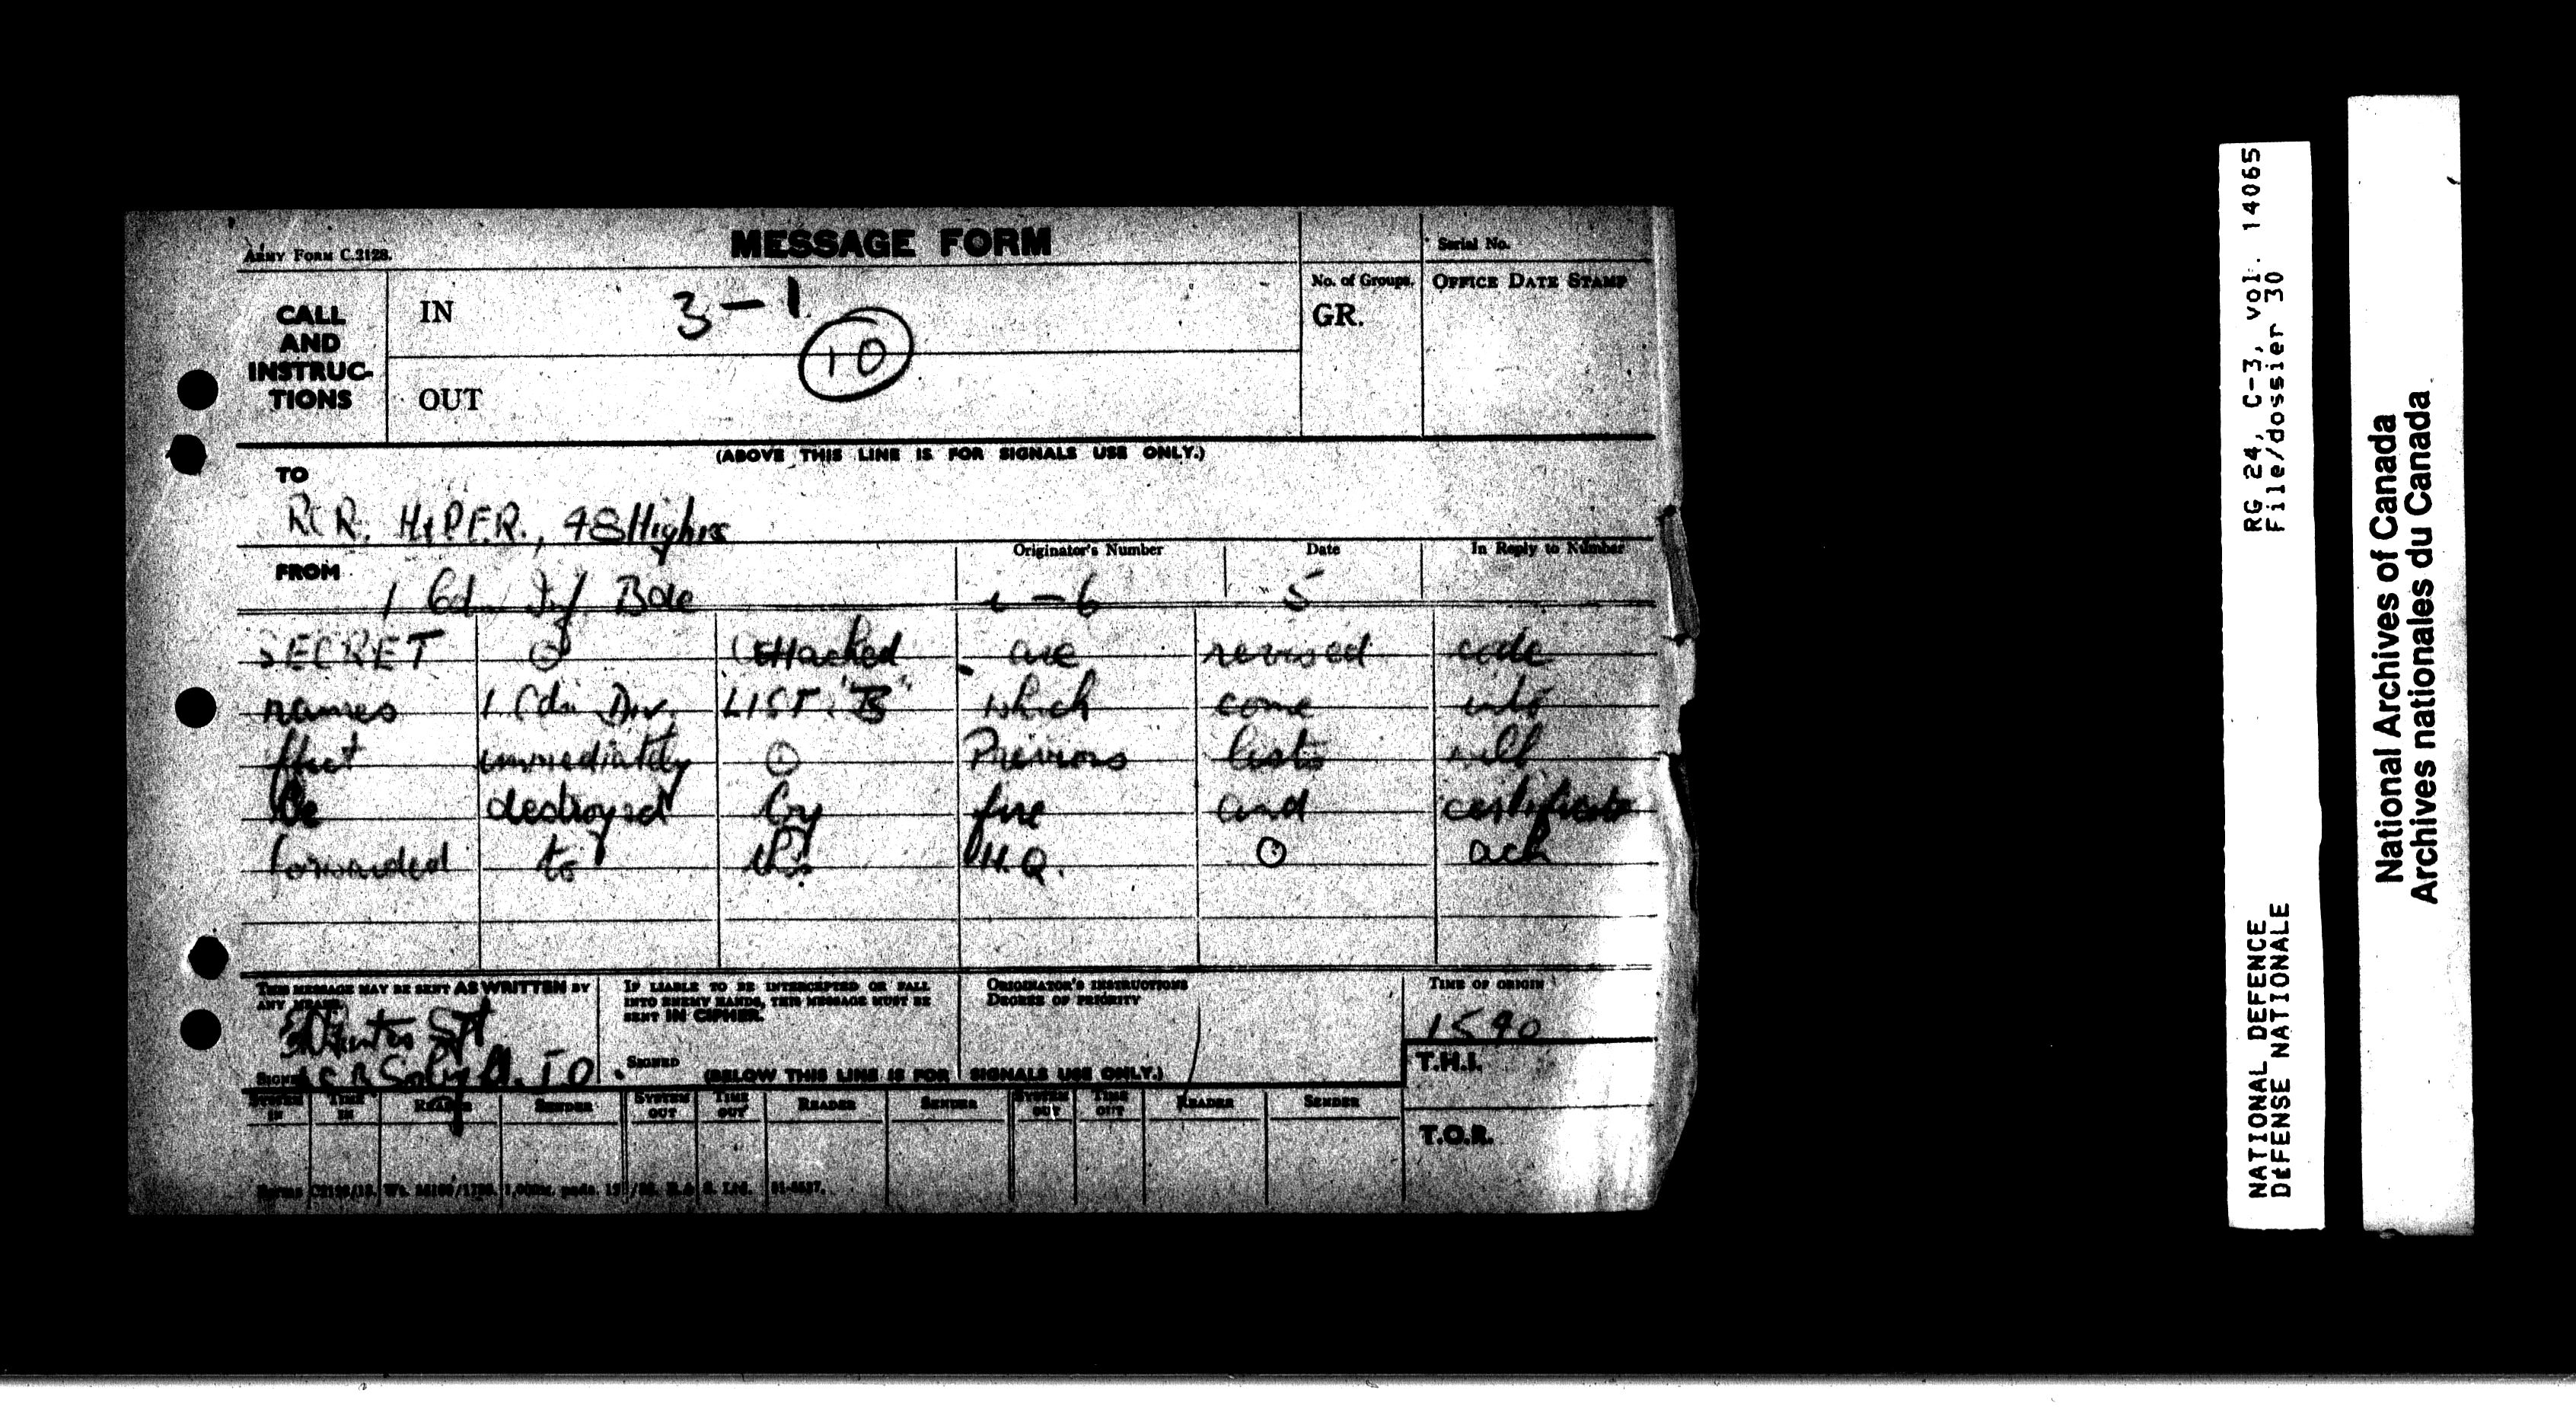 ARMY FORM C.2128.
MESSAGE FORM
Serial No.
CALL AND INSTRUC-TIONS
IN
3-1
10
OUT
No. of Groups.
GR.
OFFICE DATE STAMP
(ABOVE THIS LINE IS FOR SIGNALS USE ONLY.)
TO
RCR. H&PER., 48 Highrs
FROM
1 Cdn Inf Bde
Originator's Number
Date
5
In Reply to Number
SECRET ⊙ Attached are revised code
names 1 Cdn Div. LIST "B" which come into
effect immediately ⊙ Previous lists will
be destroyed by fire and certificate
forwarded to this H.Q. ⊙ ack
THIS MESSAGE MAY BE SENT AS WRITTEN BY
ANY MEANS.
SIGNED
IF LIABLE TO BE INTERCEPTED OR FALL
INTO ENEMY HANDS, THIS MESSAGE MUST BE
SENT IN CIPHER.
SIGNED
ORIGINATOR'S INSTRUCTIONS
DEGREE OF PRIORITY
TIME OF ORIGIN
1540
T.H.I.
T.O.R.
(BELOW THIS LINE IS FOR SIGNALS USE ONLY.)
SYSTEM IN TIME IN READER SENDER SYSTEM OUT TIME OUT READER SENDER SYSTEM OUT TIME OUT READER SENDER
RG 24, C-3, vol. 14065
File/dossier 30
NATIONAL DEFENCE
DÉFENSE NATIONALE
National Archives of Canada
Archives nationales du Canada